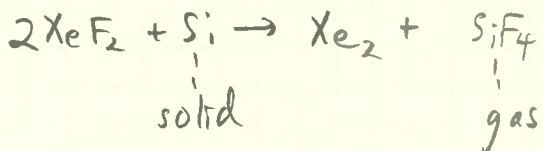 2XeF₂ + Si → Xe₂ + SiF₄
solid gas